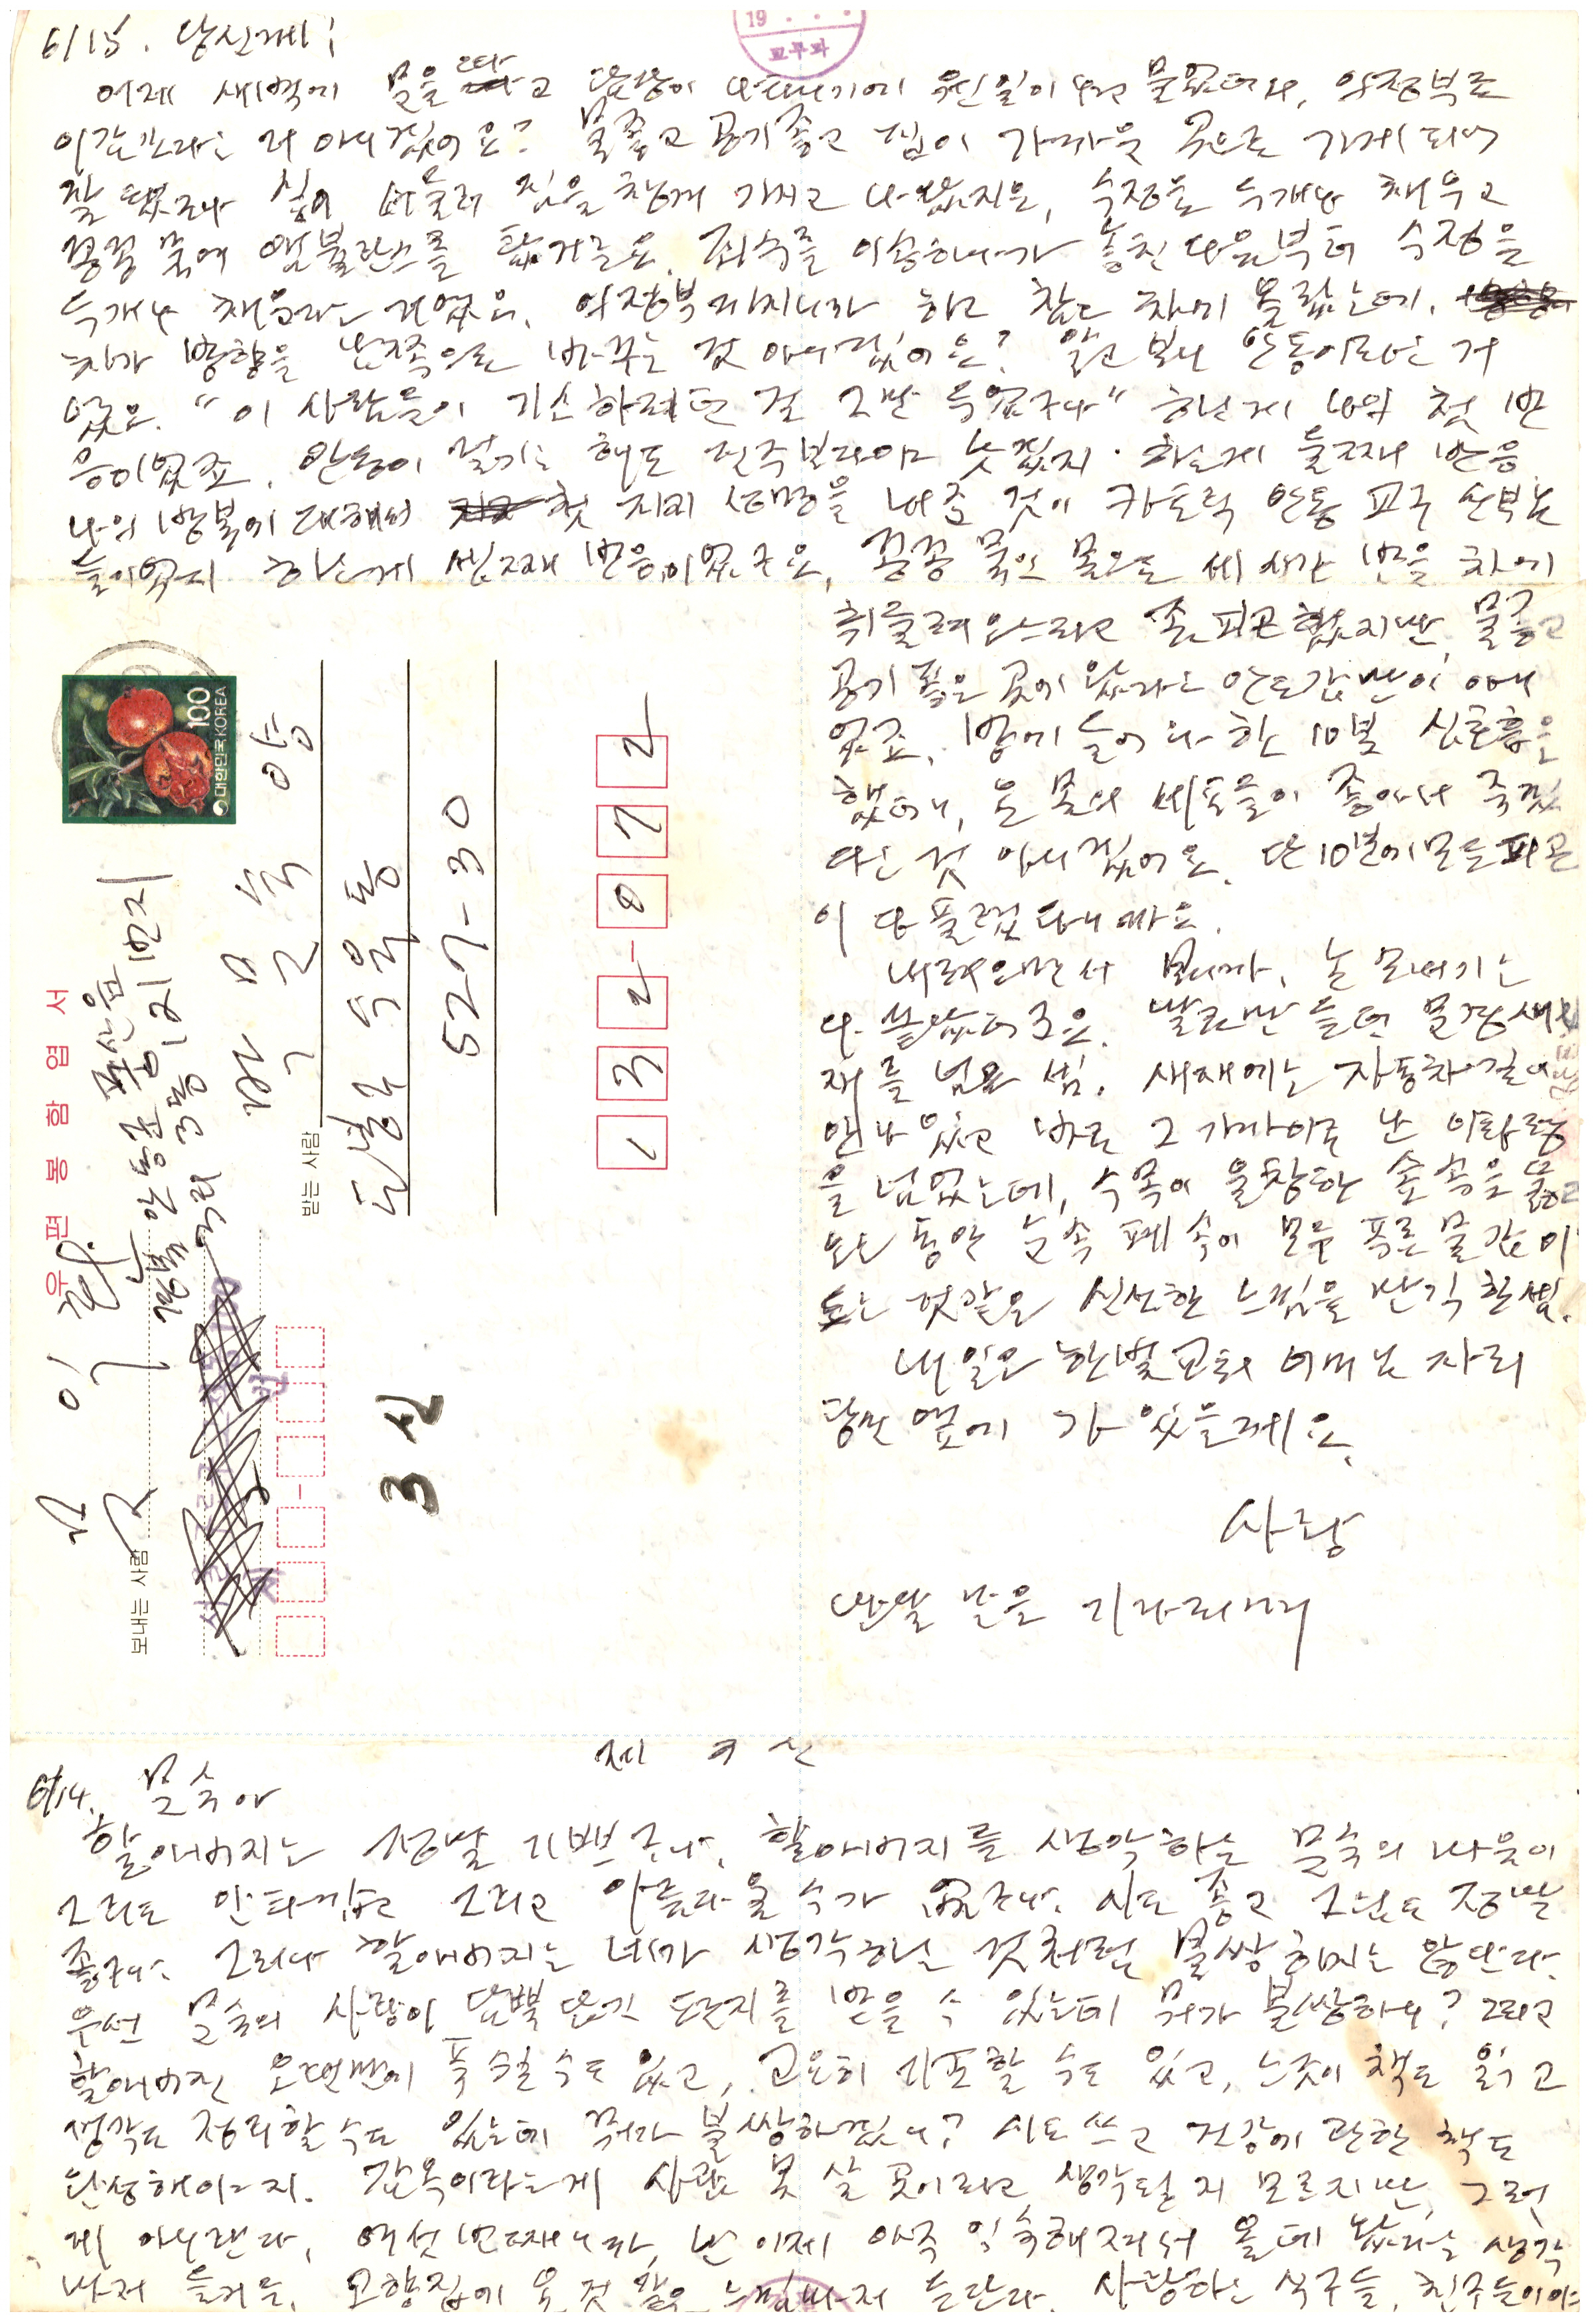 6/15. 당신께;
어제 새벽에 문을 따고 담당이 나타나기에 웬일이냐고 물었더니, 의정부로
이감간다는 거 아니겠어요? 물 좋고 공기 좋고 집이 가까운 곳으로 가게 되어
잘 됐구나 싶어 서둘러 짐을 챙겨 가지고 나왔지요, 수정을 두개나 채우고
꽁꽁 묶어 앰불란스를 탔거든요. 죄수를 이송하다가 놓친 다음부터 수정을
두개나 채운다는 거였어요. 의정부까지니까 하고 참고 차에 올랐는데,
차가 방향을 남쪽으로 바꾸는 것 아니겠어요? 알고 보니 안동이라는 거
였어요. "이 사람들이 기소하려던 걸 그만 두었구나" 하는게 나의 첫 반
응이었죠. 안동이 멀기는 해도 전주보다야 낫겠지. 하는게 둘째 반응
나의 방북에 대해서 첫 지지 성명을 내준 것이 카톨릭 안동 교구 신부님
들이었지 하는게 셋째 반응이었구요, 꽁꽁 묶인 몸으로 세 시간 반을 차에
취 흔들려 오느라고 좀 피곤했지만, 물 좋고
공기 좋은 곳에 왔다는 안도감만이 아니
었죠. 방에 들어와 한 10분 심호흡을
했더니, 온 몸의 세포들이 좋아서 죽겠
다는 것 아니겠어요. 단 10분에 모든 피곤
이 다 풀렸다니까요.
내려오면서 보니까, 논 모내기는
다 끝났더구요. 말로만 듣던 문경새
재를 넘은 셈. 새재에는 자동차길이
안나 있고 바로 그 가까이로 난 이화령
을 넘었는데, 수목이 울창한 숲속을 뚫고
오는 동안 눈 속 폐 속이 모두 푸른 물감이
드는 것같은 신선한 느낌을 만끽한 셈.
내일은 한빛교회 어머님 자리
당신 옆에 가 있을께요.
사랑
만날 날을 기다리며
우편봉함엽서
대한민국 KOREA 100
보내는 사람
경북 안동군 풍산읍
막곡리 3동 1리 1번지
받는 사람
박 문 숙 양
도봉구 수유동
527-30
132-072
3신
19 . . .
교무과
제 3 신
6/14. 문숙아
할아버지는 정말 기쁘구나. 할아버지를 생각하는 문숙의 마음이
그리도 안타깝고 그리고 아름다울 수가 없구나. 시도 좋고 그림도 정말
좋구나. 그러나 할아버지는 네가 생각하는 것처럼 불쌍하지는 않단다.
우선 문숙의 사랑이 담뿍 담긴 편지를 받을 수 있는데 뭐가 불쌍하냐? 그리고
할아버진 오랜만에 푹 쉴 수도 있고, 고요히 기도할 수도 있고, 느긋이 책도 읽고
생각도 정리할 수도 있는데 뭐가 불쌍하겠니? 시도 쓰고 건강에 관한 책도
완성해야지. 감옥이라는게 사람 못 살 곳이라고 생각될 지 모르지만, 그런
게 아니란다. 여섯 번째니까, 난 이제 아주 익숙해져서 올데 왔다는 생각
마저 들거든. 고향집에 온 것 같은 느낌마저 든단다. 사랑하는 식구들, 친구들이야